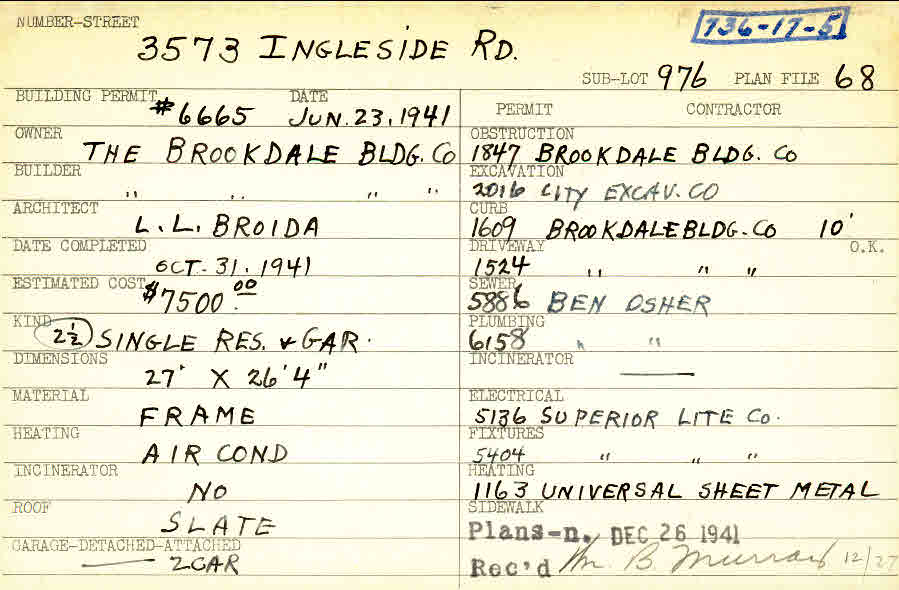 NUMBER-STREET
736-17-5
3573 INGLESIDE RD.
SUB-LOT 976 PLAN FILE 68
BUILDING PERMIT DATE
#6665 JUN. 23, 1941
PERMIT CONTRACTOR
OWNER
THE BROOKDALE BLDG. CO
OBSTRUCTION
1847 BROOKDALE BLDG. CO
BUILDER
" " " "
EXCAVATION
2016 CITY EXCAV. CO
ARCHITECT
L. L. BROIDA
CURB
1609 BROOKDALE BLDG. CO 10'
DATE COMPLETED
OCT. 31. 1941
DRIVEWAY O.K.
1524 " " "
ESTIMATED COST
$7500.00
SEWER
5886 BEN OSHER
KIND
2½ SINGLE RES. & GAR.
PLUMBING
6158 " "
DIMENSIONS
27' X 26'4"
INCINERATOR
MATERIAL
FRAME
ELECTRICAL
5136 SUPERIOR LITE CO.
HEATING
AIR COND
FIXTURES
5404 " " "
INCINERATOR
NO
HEATING
1163 UNIVERSAL SHEET METAL
ROOF
SLATE
SIDEWALK
Plans-n. DEC 26 1941
GARAGE-DETACHED-ATTACHED
2 CAR
Rec'd Wm. B. Murray 12/27